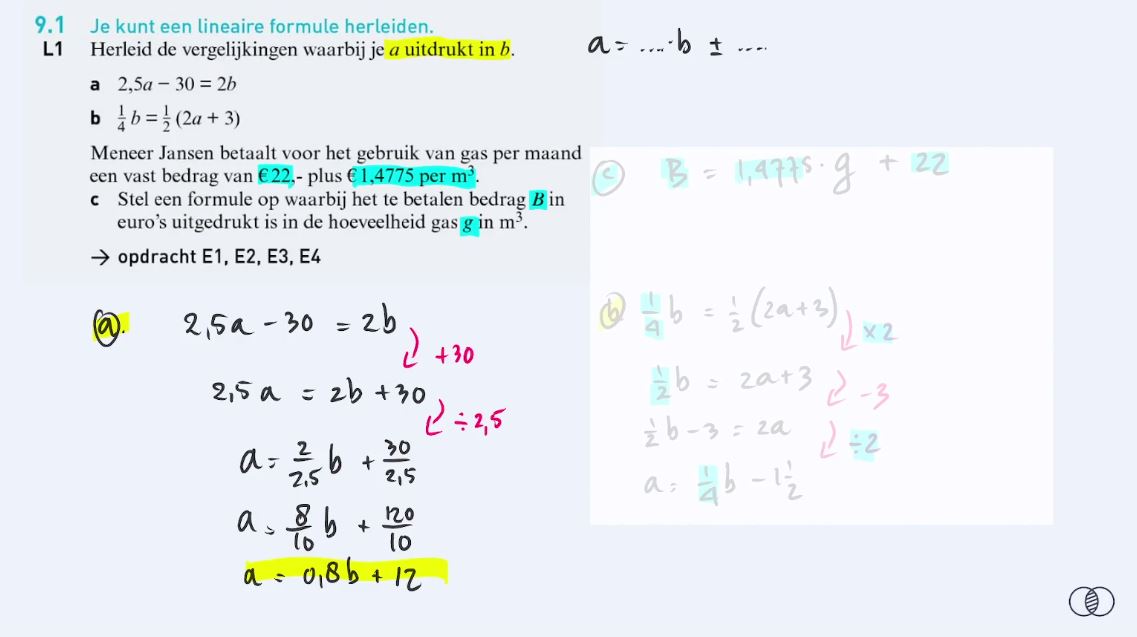 9.1 Je kunt een lineaire formule herleiden.
L1 Herleid de vergelijkingen waarbij je a uitdrukt in b.
a 2,5a − 30 = 2b
b 1/4 b = 1/2 (2a + 3)
Meneer Jansen betaalt voor het gebruik van gas per maand
een vast bedrag van € 22,- plus € 1,4775 per m³.
c Stel een formule op waarbij het te betalen bedrag B in
euro's uitgedrukt is in de hoeveelheid gas g in m³.
→ opdracht E1, E2, E3, E4
a = .... · b ± ....
c B = 1,4775 · g + 22
a. 2,5a − 30 = 2b
+30
2,5a = 2b + 30
÷ 2,5
a = 2/2,5 b + 30/2,5
a = 8/10 b + 120/10
a = 0,8b + 12
b 1/4 b = 1/2 (2a + 3)
× 2
1/2 b = 2a + 3
− 3
1/2 b − 3 = 2a
÷ 2
a = 1/4 b − 1 1/2